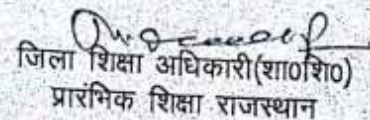 जिला शिक्षा अधिकारी(शा0शि0)
प्रारंभिक शिक्षा राजस्थान